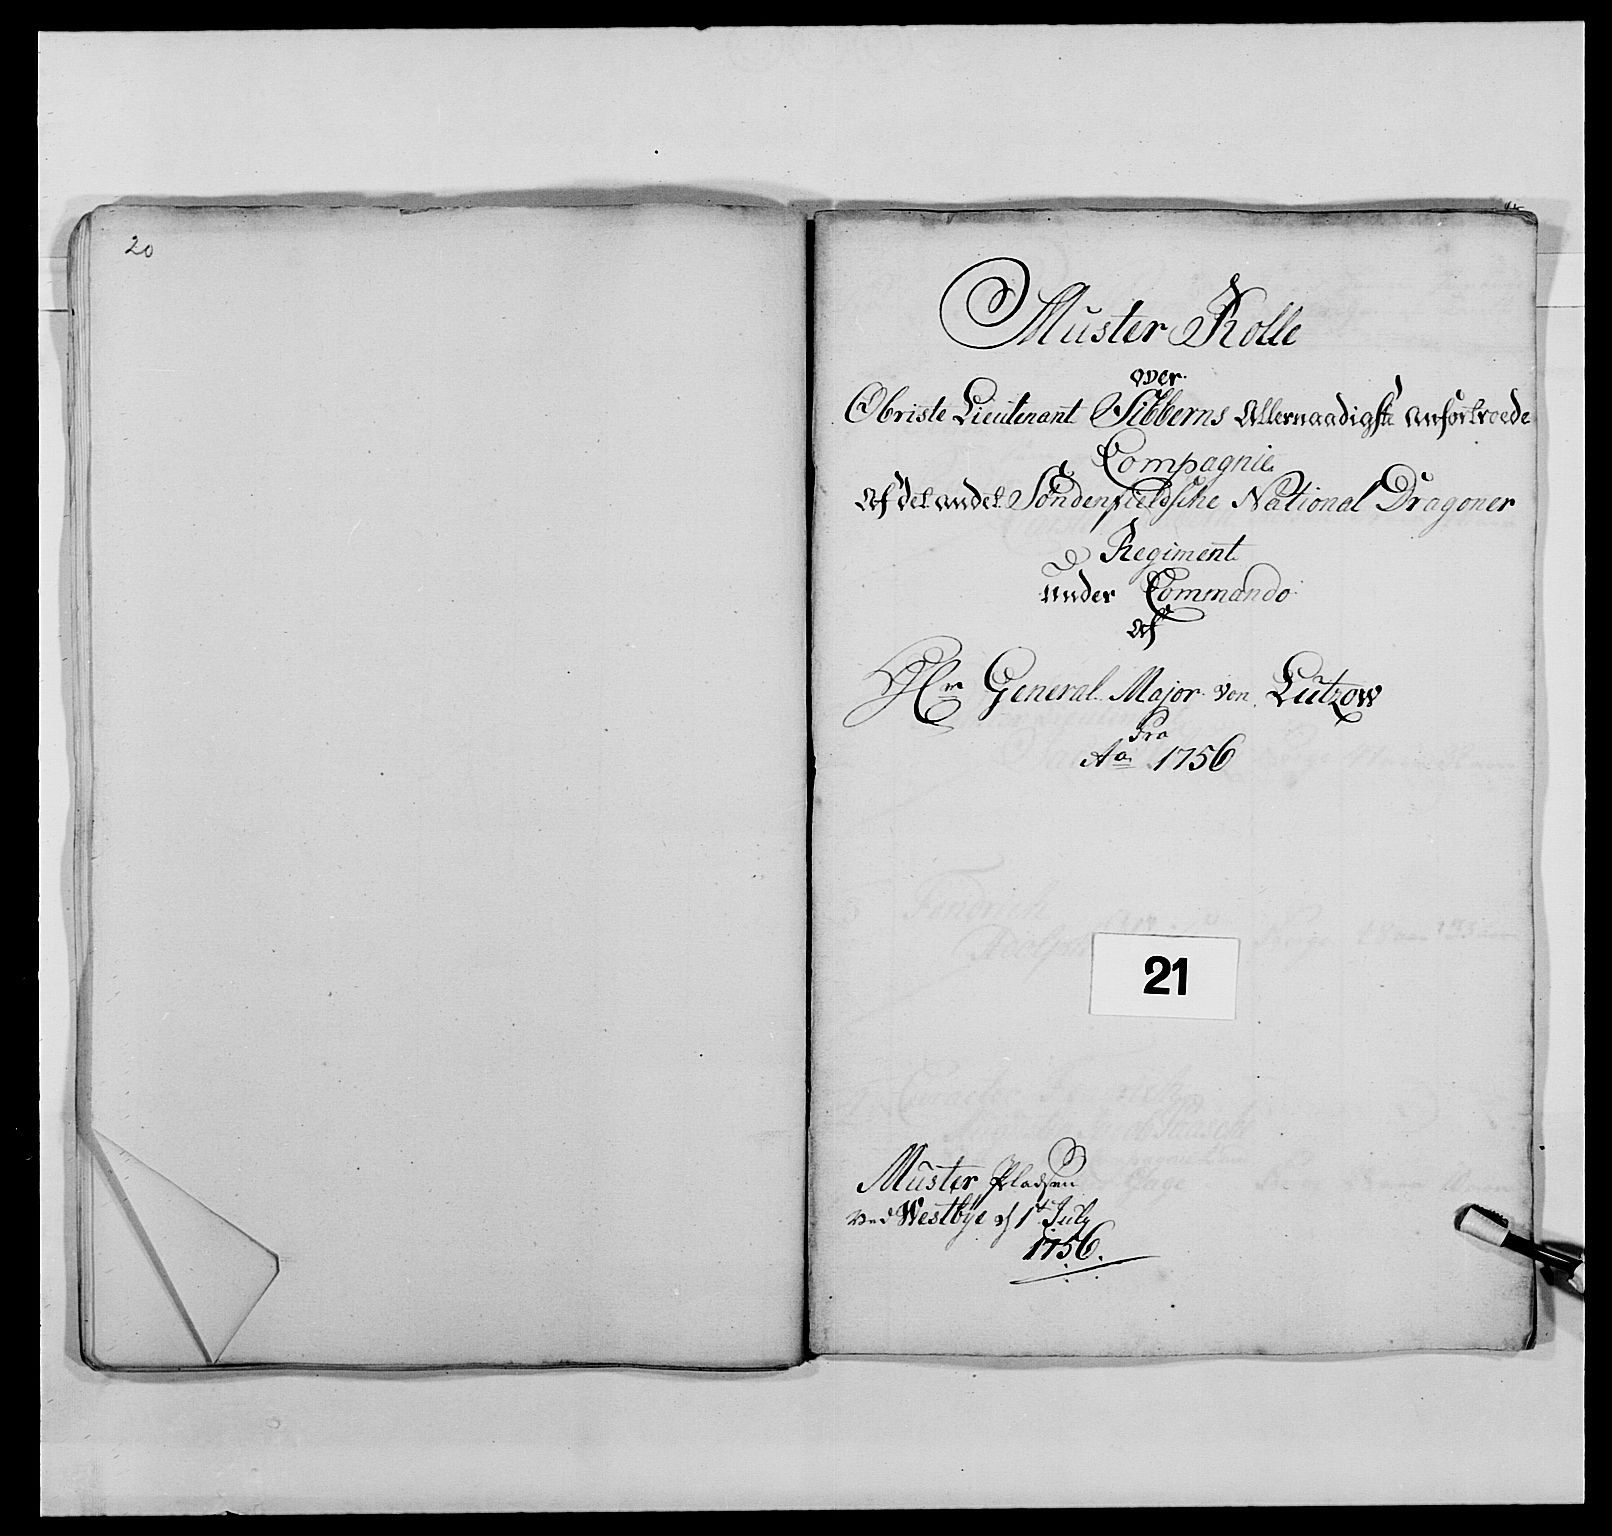 20
Muster Rolle
over
Obriste Lieutenant Sibberns Allernaadigst anfortroede
Compagnie
Af det andet Søndenfieldsche National Dragoner
Regiment
under Commando
Af
Hr General Major von Lützow
Pro
Ao 1756
21
Muster Pladsen
ved Westbye d 1t July
1756.